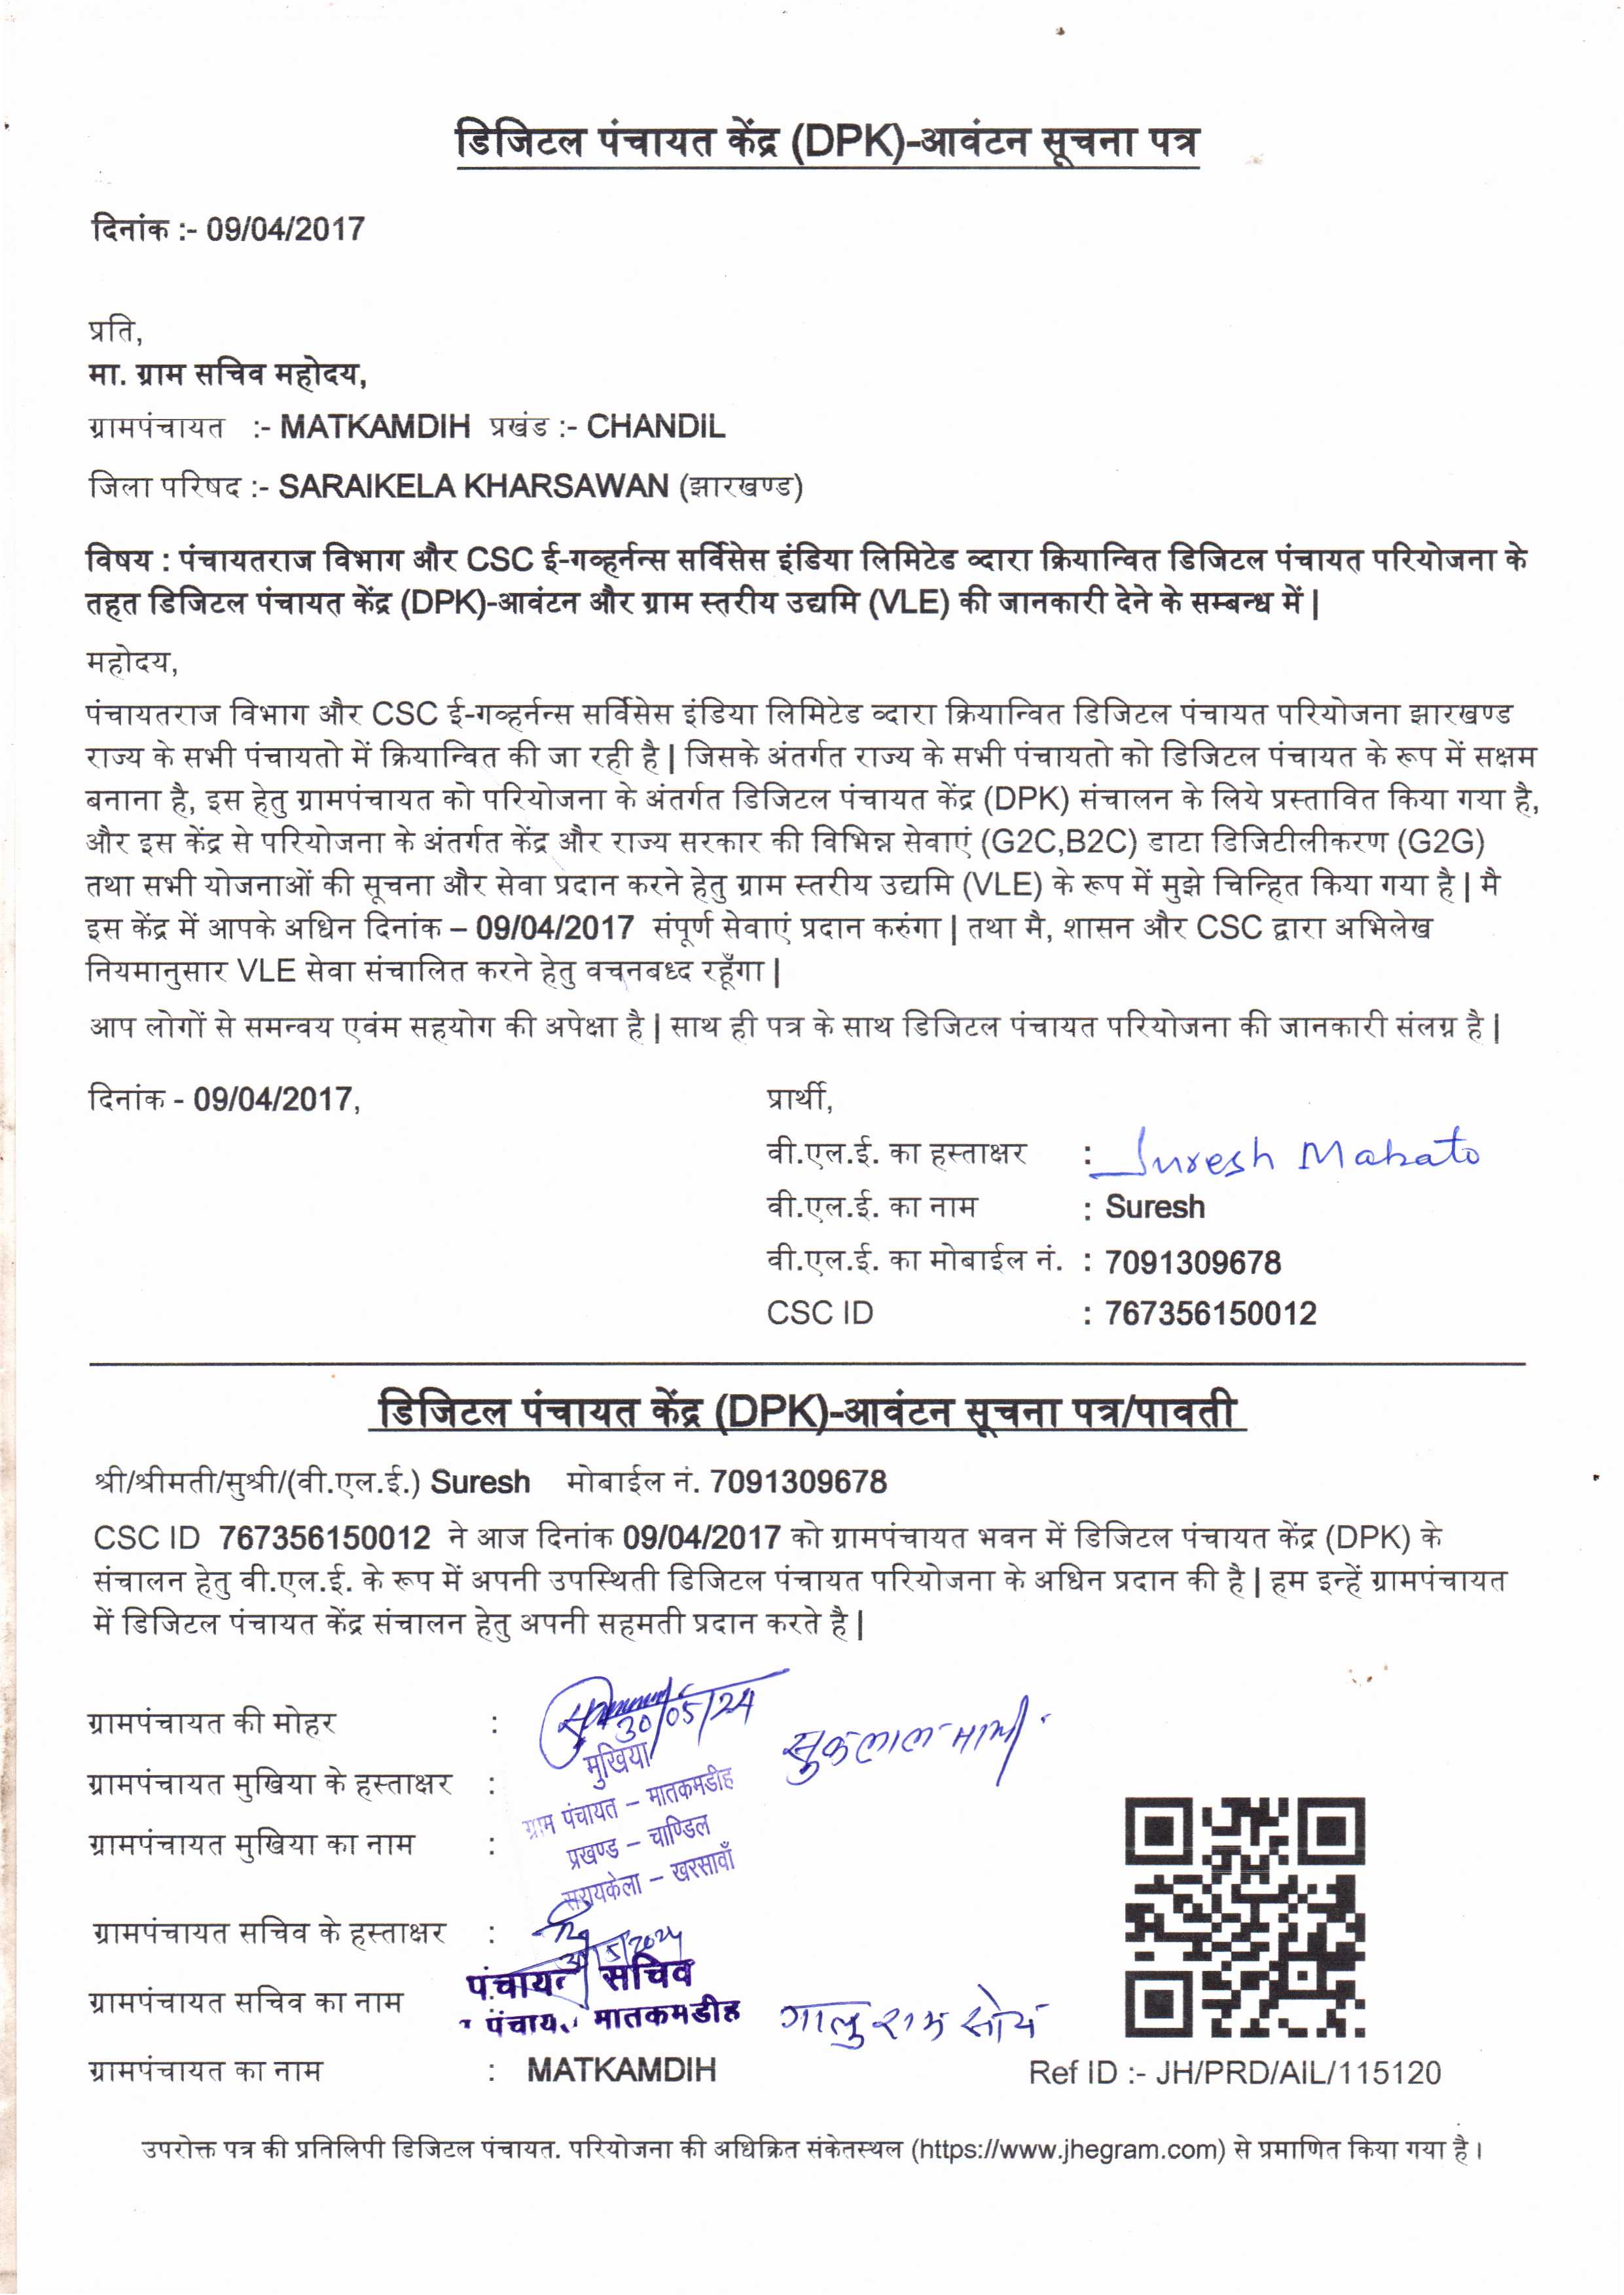 डिजिटल पंचायत केंद्र (DPK)-आवंटन सूचना पत्र
दिनांक :- 09/04/2017
प्रति,
मा. ग्राम सचिव महोदय,
ग्रामपंचायत :- MATKAMDIH प्रखंड :- CHANDIL
जिला परिषद :- SARAIKELA KHARSAWAN (झारखण्ड)
विषय : पंचायतराज विभाग और CSC ई-गव्हर्नन्स सर्विसेस इंडिया लिमिटेड व्दारा क्रियान्वित डिजिटल पंचायत परियोजना के
तहत डिजिटल पंचायत केंद्र (DPK)-आवंटन और ग्राम स्तरीय उद्यमि (VLE) की जानकारी देने के सम्बन्ध में |
महोदय,
पंचायतराज विभाग और CSC ई-गव्हर्नन्स सर्विसेस इंडिया लिमिटेड व्दारा क्रियान्वित डिजिटल पंचायत परियोजना झारखण्ड
राज्य के सभी पंचायतो में क्रियान्वित की जा रही है | जिसके अंतर्गत राज्य के सभी पंचायतो को डिजिटल पंचायत के रूप में सक्षम
बनाना है, इस हेतु ग्रामपंचायत को परियोजना के अंतर्गत डिजिटल पंचायत केंद्र (DPK) संचालन के लिये प्रस्तावित किया गया है,
और इस केंद्र से परियोजना के अंतर्गत केंद्र और राज्य सरकार की विभिन्न सेवाएं (G2C,B2C) डाटा डिजिटीलीकरण (G2G)
तथा सभी योजनाओं की सूचना और सेवा प्रदान करने हेतु ग्राम स्तरीय उद्यमि (VLE) के रूप में मुझे चिन्हित किया गया है | मै
इस केंद्र में आपके अधिन दिनांक – 09/04/2017 संपूर्ण सेवाएं प्रदान करुंगा | तथा मै, शासन और CSC द्वारा अभिलेख
नियमानुसार VLE सेवा संचालित करने हेतु वचनबध्द रहूँगा |
आप लोगों से समन्वय एवंम सहयोग की अपेक्षा है | साथ ही पत्र के साथ डिजिटल पंचायत परियोजना की जानकारी संलग्न है |
दिनांक - 09/04/2017,
प्रार्थी,
वी.एल.ई. का हस्ताक्षर : Suresh Mahato
वी.एल.ई. का नाम : Suresh
वी.एल.ई. का मोबाईल नं. : 7091309678
CSC ID : 767356150012
डिजिटल पंचायत केंद्र (DPK)-आवंटन सूचना पत्र/पावती
श्री/श्रीमती/सुश्री/(वी.एल.ई.) Suresh मोबाईल नं. 7091309678
CSC ID 767356150012 ने आज दिनांक 09/04/2017 को ग्रामपंचायत भवन में डिजिटल पंचायत केंद्र (DPK) के
संचालन हेतु वी.एल.ई. के रूप में अपनी उपस्थिती डिजिटल पंचायत परियोजना के अधिन प्रदान की है | हम इन्हें ग्रामपंचायत
में डिजिटल पंचायत केंद्र संचालन हेतु अपनी सहमती प्रदान करते है |
ग्रामपंचायत की मोहर : 30/05/24
मुखिया
ग्रामपंचायत मुखिया के हस्ताक्षर :
ग्राम पंचायत – मातकमडीह
ग्रामपंचायत मुखिया का नाम :
प्रखण्ड – चाण्डिल
सरायकेला – खरसावाँ
ग्रामपंचायत सचिव के हस्ताक्षर :
पंचायत सचिव
ग्रामपंचायत सचिव का नाम
पंचाय. मातकमडीह
ग्रामपंचायत का नाम : MATKAMDIH
Ref ID :- JH/PRD/AIL/115120
उपरोक्त पत्र की प्रतिलिपी डिजिटल पंचायत. परियोजना की अधिक्रित संकेतस्थल (https://www.jhegram.com) से प्रमाणित किया गया है।